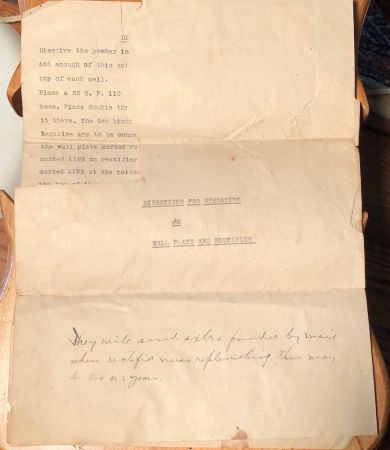 DI
Dissolve the powder in
Add enough of this sol
top of each cell.
Place a 32 C. P. 110
base. Place double thr
it there. The two bindi
Negative are to be conne
the wall plate marked PO
marked LINE on rectifier
marked LINE at the bottom
the top of th
DIRECTIONS FOR OPERATING
WALL PLATE AND RECTIFIER
They will send extra powder by mail
when rectifier needs replenishing this may
be two or 3 years.